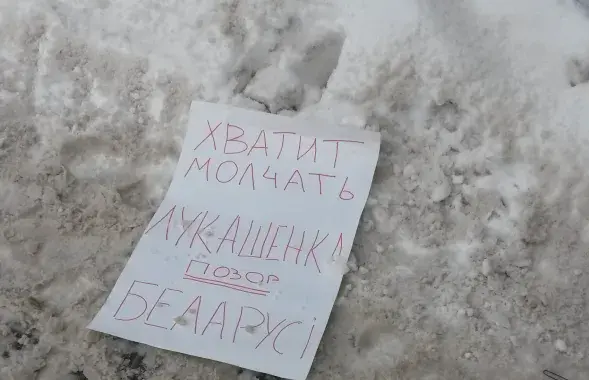 ХВАТИТ
МОЛЧАТЬ
ЛУКАШЕНКА
ПОЗОР
БЕЛАРУСІ